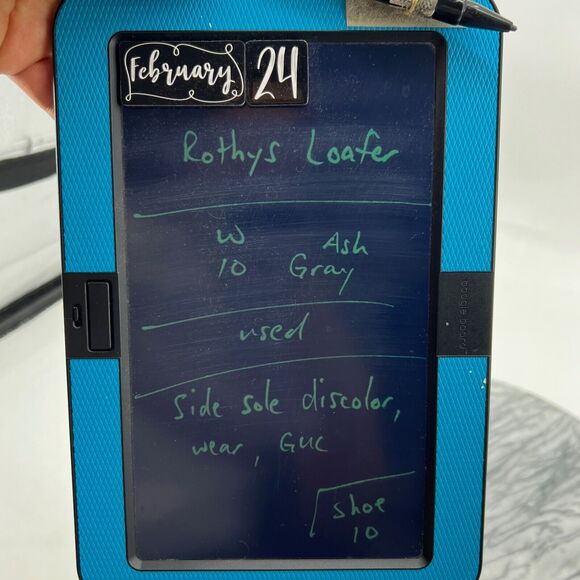 February 24
Rothys Loafer
W Ash
10 Gray
used
side sole discolor,
wear, GUC
shoe
10
boogie board